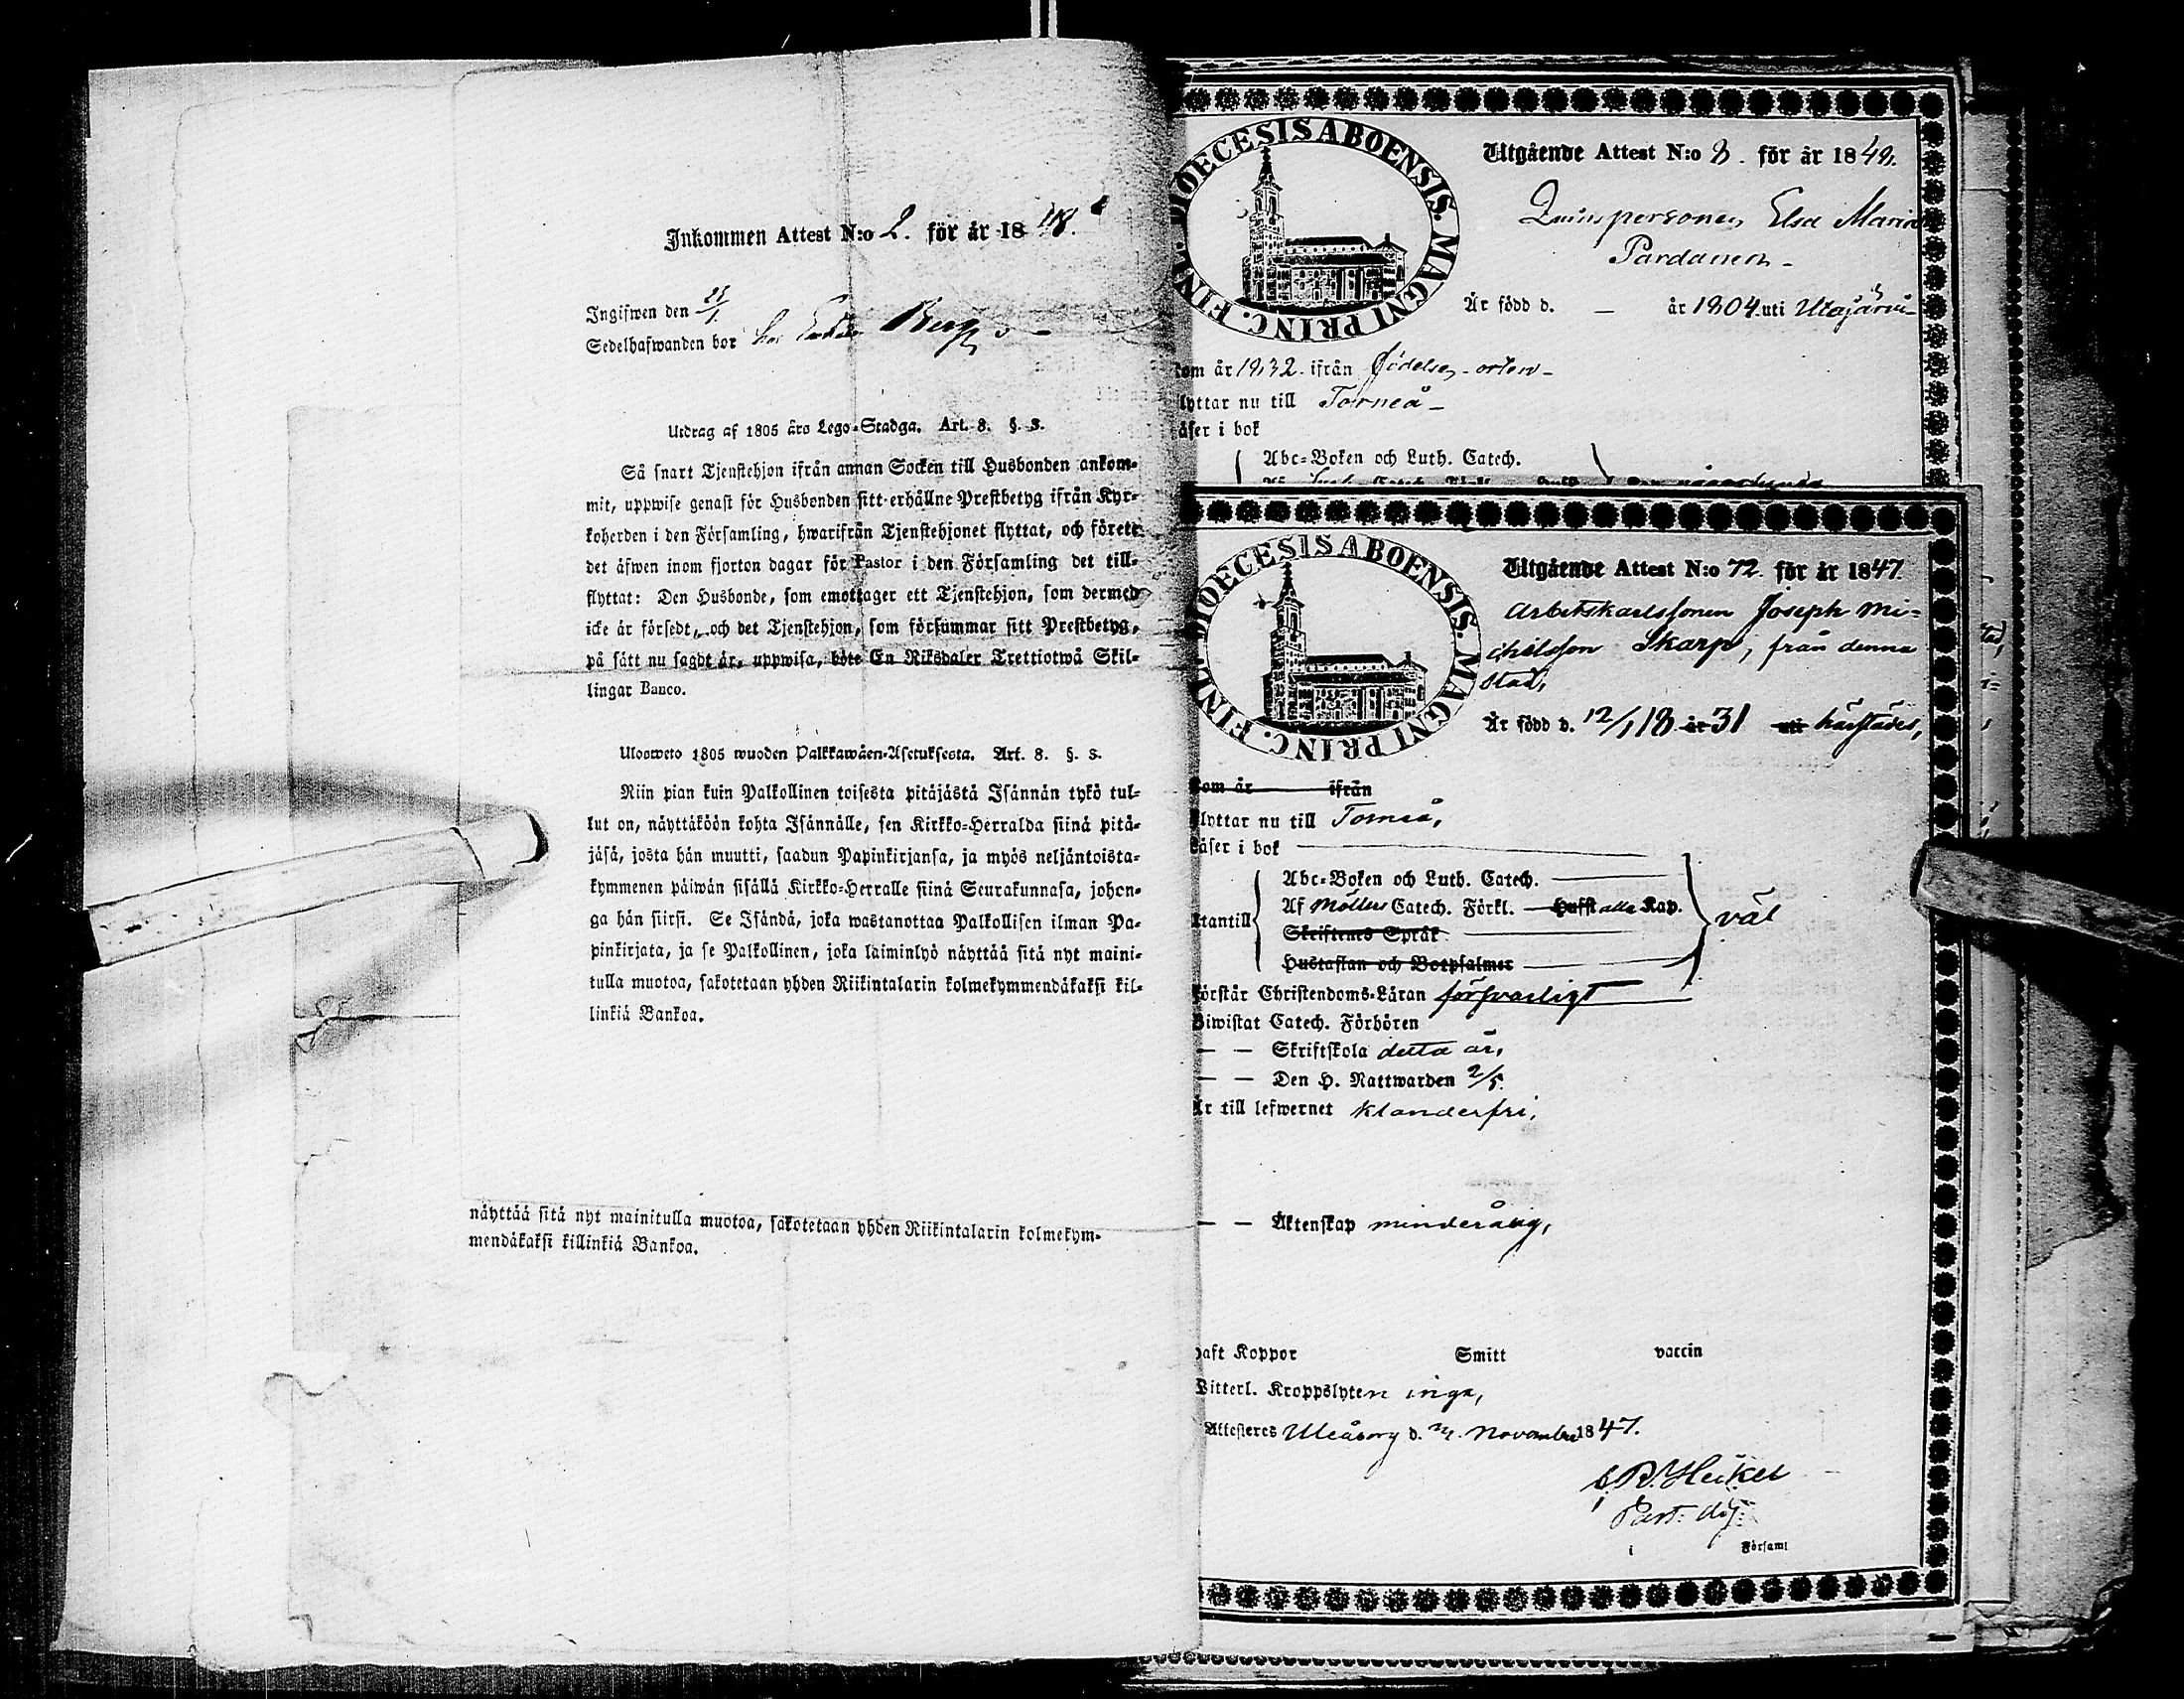 Inkommen Attest N:o 2. för år 1848.
Ingifwen den 23/1.
Sedelhafwanden bor hos Berg
Utdrag af 1805 års Lego-Stadga. Art. 8. §. 3.
Så snart Tjenstehjon ifrån annan Socken till Husbonden ankom-
mit, uppwise genast för Husbonden sitt erhållne Prestbetyg ifrån Kyr-
koherden i den Församling, hwarifrån Tjenstehjonet flyttat, och förete
det äfwen inom fjorton dagar för Pastor i den Församling det till-
flyttat: Den Husbonde, som emottager ett Tjenstehjon, som dermed
icke är försedt, och det Tjenstehjon, som försummar sitt Prestbetyg,
på sätt nu sagdt är, uppwisa, böte En Riksdaler Trettiotwå Skil-
lingar Banco.
Ulosweto 1805 wuoden Palkkawäen-Asetuksesta. Art. 8. §. 3.
Niin pian kuin Palkollinen toisesta pitäjästä Isännän tykö tul-
lut on, näyttäköön kohta Isännälle, sen Kirkko-Herralda siinä pitä-
jäsä, josta hän muutti, saadun Papinkirjansa, ja myös neljäntoista-
kymmenen päiwän sisällä Kirkko-Herralle siinä Seurakunnasa, johon-
ga hän siirsi. Se Isändä, joka wastanottaa Palkollisen ilman Pa-
pinkirjata, ja se Palkollinen, joka laiminlyö näyttää sitä nyt maini-
tulla muotoa, sakotetaan yhden Riikintalarin kolmekymmendäkaksi kil-
linkiä Bankoa.
näyttää sitä nyt mainitulla muotoa, sakotetaan yhden Riikintalarin kolmekym-
mendäkaksi killinkiä Bankoa.
DIOECESIS ABOENSIS. MAGNI PRINC. FINL.
Utgående Attest N:o 8. för år 1849.
Qvinspersonen Elsa Maria
Pardanen
Är född d. — år 1804 uti Utajärvi
kom år 1832. ifrån födelse-orten
flyttar nu till Torneå
läser i bok
Abc-Boken och Luth. Catech.
DIOECESIS ABOENSIS. MAGNI PRINC. FINL.
Utgående Attest N:o 72. för år 1847.
Arbetskarlssonen Joseph Mi-
chelsson Skarp, från denna
stad,
Är född d. 12/1 18 år 31 uti härstädes,
kom år ifrån
flyttar nu till Torneå,
läser i bok
Abc-Boken och Luth. Catech.
utantill Af Möllers Catech. Förkl. Hufst alla Kap. väl
Skriftenes Språk
Hustaflan och Botpsalmer
förstår Christendoms-Läran försvarligt
Biwistat Catech. Förhören
— — Skriftskola detta år,
— — Den H. Nattwarden 2/5.
Är till lefwernet klanderfri,
— — Äktenskap minderårig,
haft Koppor Smitt vaccin
Witterl. Kroppslyten inga,
Attesteres Uleåborg d. November 1847.
Heikel
Past: 
i Församl